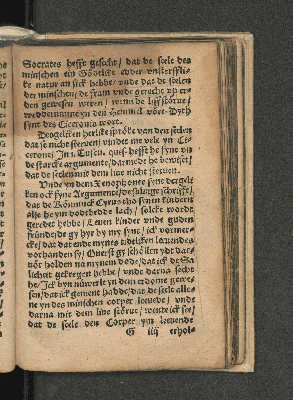 Socrates hefft gesecht / dat de seele des
minschen ein Götlike edder vnsterfflike
natur an sick hebbe / vnde dat de seelen
der minschen / de fram vnde gerecht vp er-
den gewesen weren / wenn de lyff störue /
wedderumme yn den Hemmel vöre. Dyth
synt des Ciceronis wort.
Dergeliken herlike spröke van den seelen
dat se nicht steruen / vindet me vele yn Ci-
cerone / Jn 1. Tuscu. ques. hefft he syne vn
de starcke argumente / darmede he bewiset /
dat de seelen mit dem liue nicht steruen.
Vnde yn dem Xenophonte synt dergeli-
ken ock syne Argumente / de sülvige schrifft /
dat de Könninck Cyrus tho synen kinderen
alse he ym dodtbedde lach / solcke worde
geredet hebbe / Leuen kinder vnde guden
fründe / de gy hyr by my syne / ick vormer-
cke / dat dat ende mynes tidtliken leuendes
vorhanden sy / Querst gy schöllen ydt dar-
vör holden na mynem dode / dat ick de Sa-
licheit gekregen hebbe / vnde darna secht
he / Jck byn nüwerle yn dem erdome gewe-
sen / dat ick gemenet hadde / dat de seele alle-
ne yn des minschen corper leuede / vnde
darna mit dem liue störue / wente ick see /
dat de seele den Corper ym leuende
G iiij erhol-